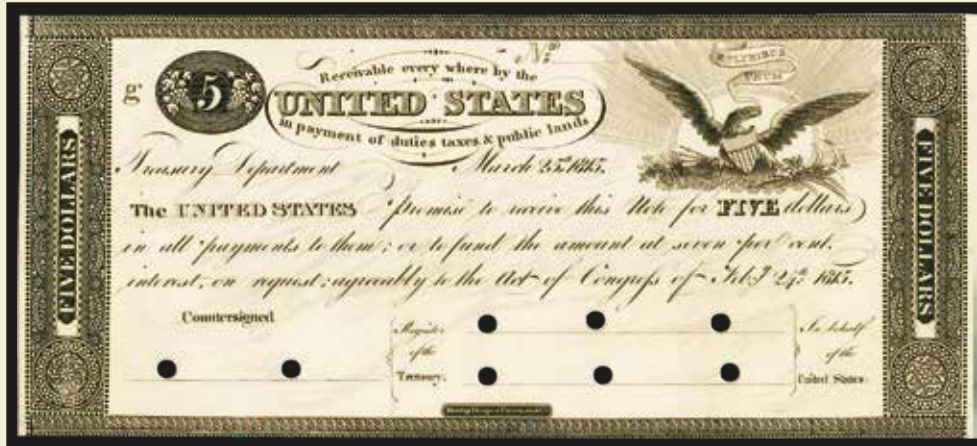 g.
5
Receivable every where by the
UNITED STATES
in payment of duties taxes & public lands
No.
E PLURIBUS
UNUM
Treasury Department March 25th 1815.
The UNITED STATES Promise to receive this Note for FIVE dollars
in all payments to them; or to fund the amount at seven per cent.
interest, on request; agreeably to the Act of Congreſs of Feb.y 24th 1815.
Countersigned
Register
of the
Treasury.
In behalf
of the
United States.
FIVE DOLLARS
FIVE DOLLARS